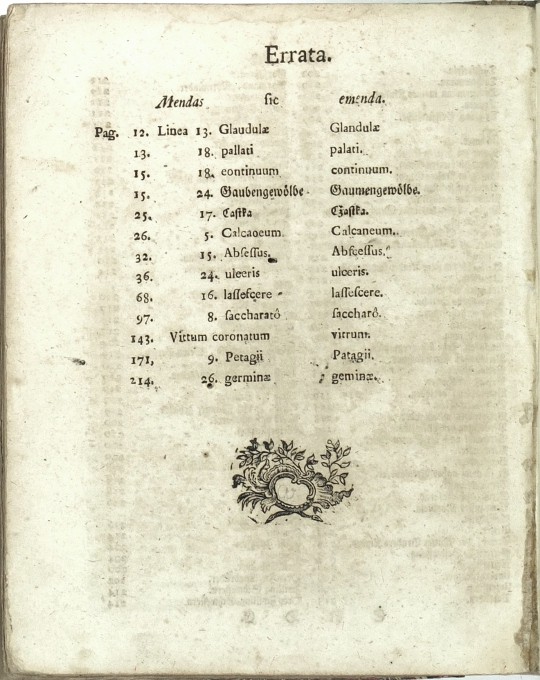 Errata.
Mendas sic emenda.
Pag. 12. Linea 13. Glaudulæ Glandulæ
13. 18. pallati palati.
15. 18. eontinuum continuum.
15. 24. Gaubengewölbe Gaumengewölbe.
25. 17. Castka Cžastka.
26. 5. Calcaoeum Calcaneum.
32. 15. Abſeſſus. Abſceſſus.
36. 24. ulceris ulceris.
68. 16. laſſeſcere laſſeſcere.
97. 8. ſaccharatô ſaccharô.
143. Vittum coronatum vitrum.
171, 9. Petagii Patagii.
214. 26. germinæ geminæ.